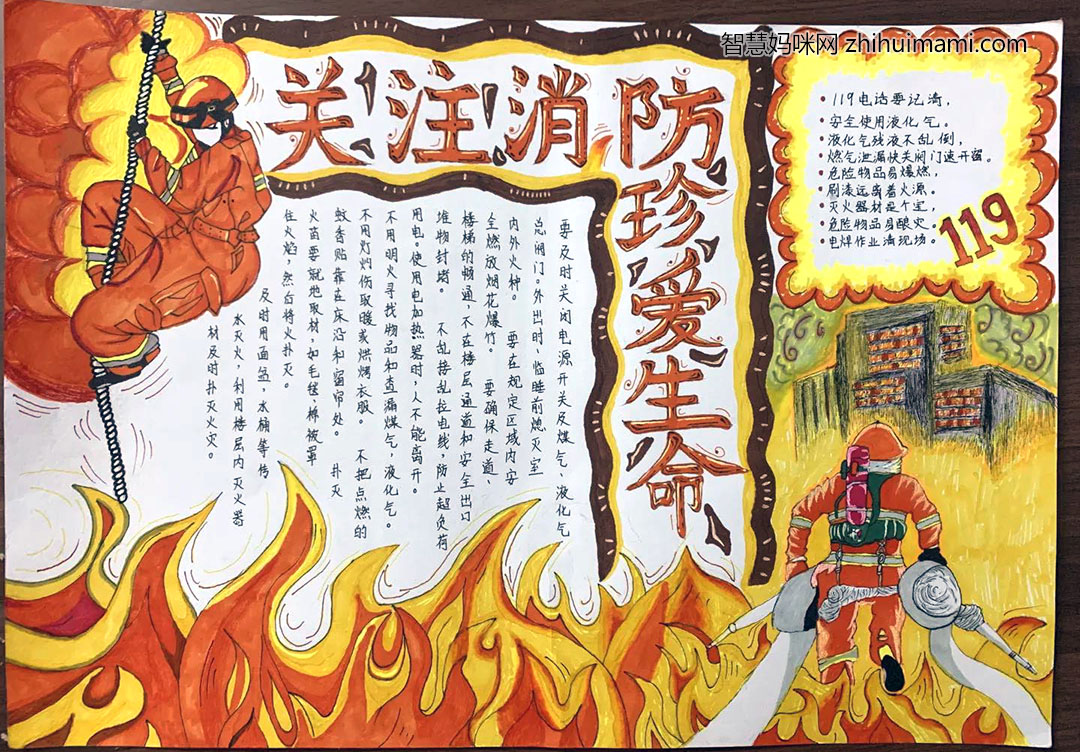 智慧妈咪网 zhihuimami.com
关注消防
珍爱生命
119电话要记清,
安全使用液化气。
液化气残液不乱倒,
燃气泄漏快关阀门速开留。
危险物品易爆燃,
刷漆远离着火源。
灭火器材是个宝,
危险物品易酿灾。
电焊作业清现场。
119
要及时关闭电源开关及煤气、液化气
总阀门。外出时、临睡前熄灭室
内外火种。 要在规定区域内安
全燃放烟花爆竹。 要确保走道、
楼梯的畅通,不在楼层通道和安全出口
堆物封堵。 不乱接乱拉电线,防止超负荷
用电。使用电加热器时,人不能离开。
不用明火寻找物品和查漏煤气,液化气。
不用灯灼伤取暖或烘烤衣服 不把点燃的
蚊香贴靠在床沿和窗帘处。 扑灭
火苗要就地取材,如毛毯、棉被罩
住火焰,然后将火扑灭。
及时用面盆,水桶等传
水灭火,利用楼层内灭火器
材及时扑灭火灾。